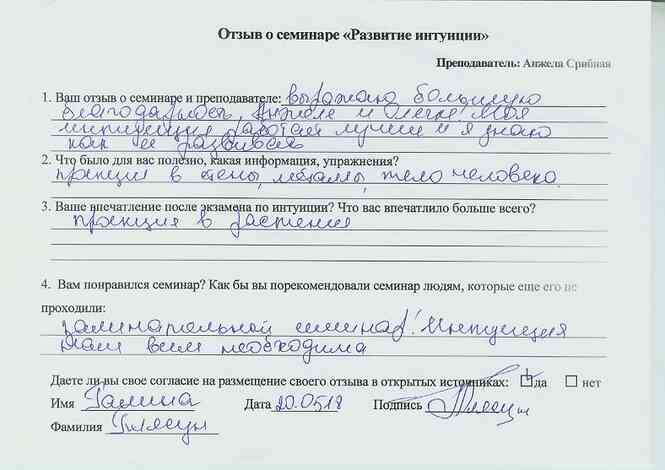 Отзыв о семинаре «Развитие интуиции»
Преподаватель: Анжела Срибная
1. Ваш отзыв о семинаре и преподавателе: выражаю большую
благодарность, Анжеле и Олеге! Моя
интуиция работает лучше и я знаю
как ее развивать
2. Что было для вас полезно, какая информация, упражнения?
в стены, металлы, тело человека.
3. Ваше впечатление после экзамена по интуиции? Что вас впечатлило больше всего?
в растения
4. Вам понравился семинар? Как бы вы порекомендовали семинар людям, которые еще его не
проходили:
семинар! Интуиция
нам всем необходима
Даете ли вы свое согласие на размещение своего отзыва в открытых источниках: да нет
Имя Галина Дата 20.05.18 Подпись
Фамилия